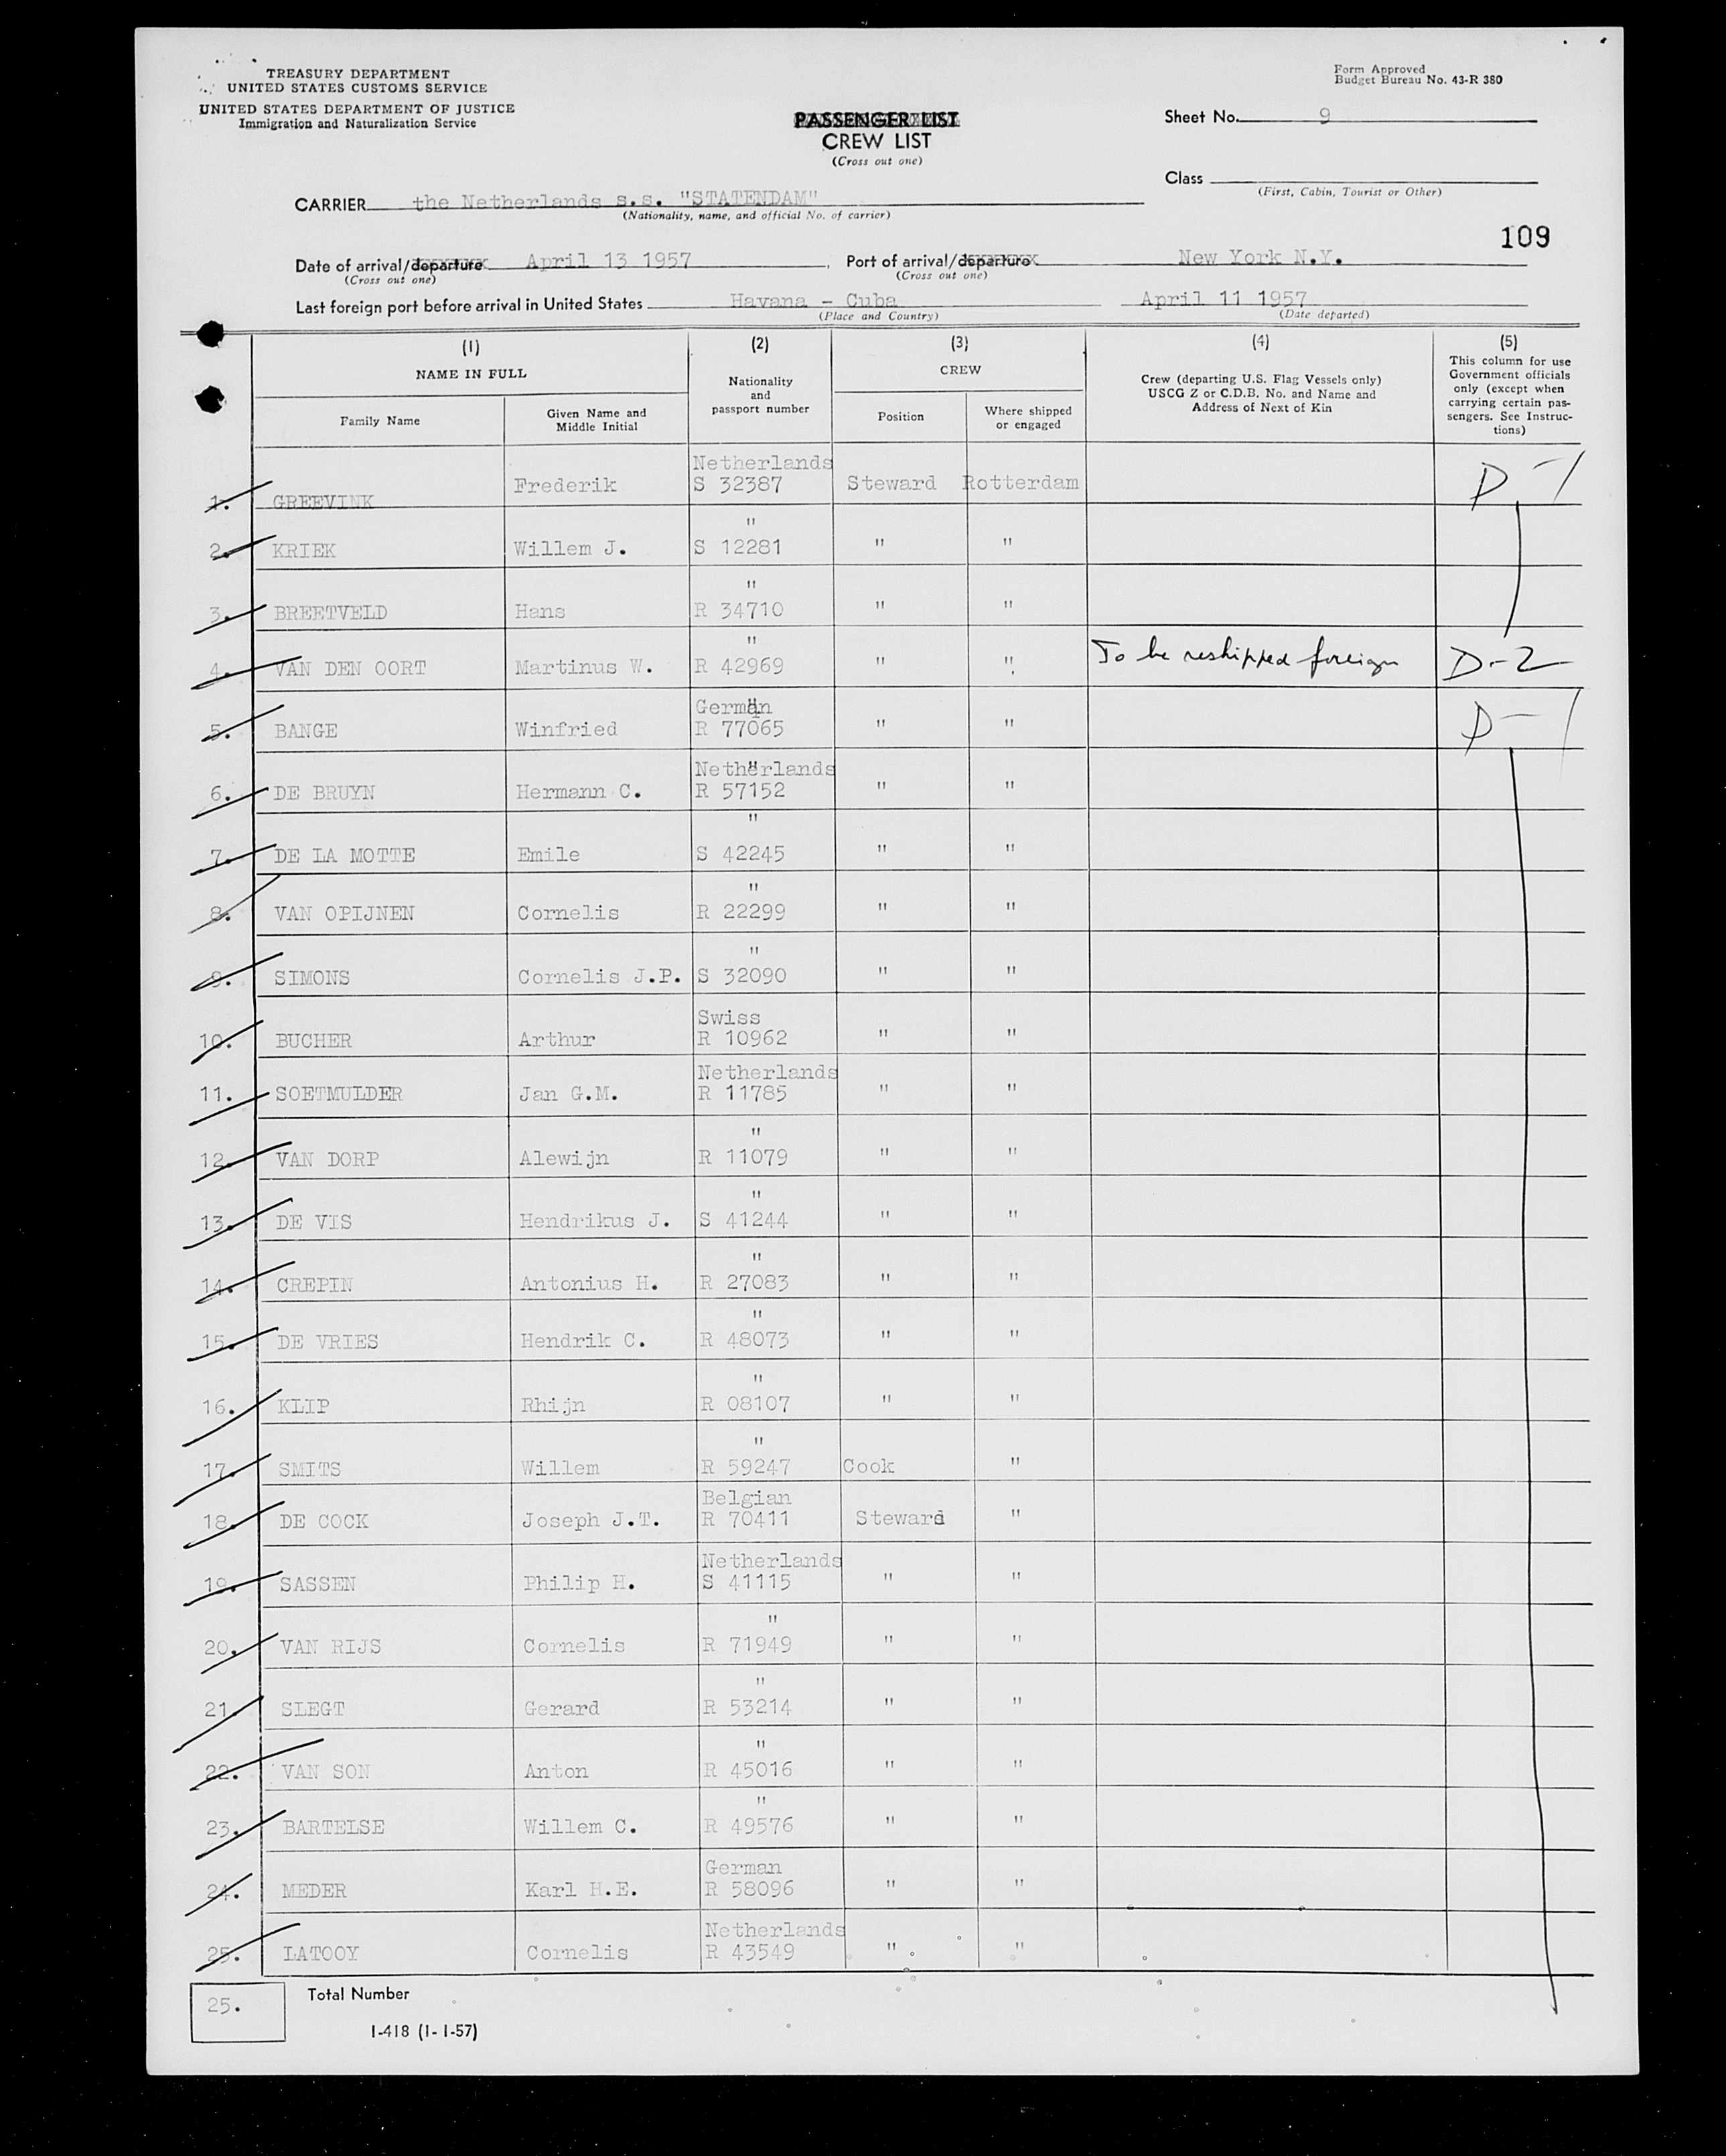 TREASURY DEPARTMENT
UNITED STATES CUSTOMS SERVICE
UNITED STATES DEPARTMENT OF JUSTICE
Immigration and Naturalization Service
Form Approved
Budget Bureau No. 43-R 380
PASSENGER LIST
CREW LIST
(Cross out one)
Sheet No. 9
Class
(First, Cabin, Tourist or Other)
CARRIER the Netherlands s.s. "STATENDAM"
(Nationality, name, and official No. of carrier)
109
Date of arrival/departure April 13 1957 Port of arrival/departure New York N.Y.
(Cross out one) (Cross out one)
Last foreign port before arrival in United States Havana - Cuba April 11 1957
(Place and Country) (Date departed)
(1) (2) (3) (4) (5)
NAME IN FULL
Family Name
Given Name and
Middle Initial
Nationality
and
passport number
CREW
Position
Where shipped
or engaged
Crew (departing U.S. Flag Vessels only)
USCG Z or C.D.B. No. and Name and
Address of Next of Kin
This column for use
Government officials
only (except when
carrying certain pas-
sengers. See Instruc-
tions)
Netherlands
1. GREEVINK Frederik S 32387 Steward Rotterdam D-1
"
2. KRIEK Willem J. S 12281 " "
"
3. BREETVELD Hans R 34710 " "
"
4. VAN DEN OORT Martinus W. R 42969 " " To be reshipped foreign D-2
German
5. BANGE Winfried R 77065 " " D-1
Netherlands
6. DE BRUYN Hermann C. R 57152 " "
"
7. DE LA MOTTE Emile S 42245 " "
"
8. VAN OPIJNEN Cornelis R 22299 " "
"
9. SIMONS Cornelis J.P. S 32090 " "
Swiss
10. BUCHER Arthur R 10962 " "
Netherlands
11. SOETMULDER Jan G.M. R 11785 " "
"
12. VAN DORP Alewijn R 11079 " "
"
13. DE VIS Hendrikus J. S 41244 " "
"
14. CREPIN Antonius H. R 27083 " "
"
15. DE VRIES Hendrik C. R 48073 " "
"
16. KLIP Rhijn R 08107 " "
"
17. SMITS Willem R 59247 Cook "
Belgian
18. DE COCK Joseph J.T. R 70411 Steward "
Netherlands
19. SASSEN Philip H. S 41115 " "
"
20. VAN RIJS Cornelis R 71949 " "
"
21. SLEGT Gerard R 53214 " "
"
22. VAN SON Anton R 45016 " "
"
23. BARTELSE Willem C. R 49576 " "
German
24. MEDER Karl H.E. R 58096 " "
Netherlands
25. LATOOY Cornelis R 43549 " "
25. Total Number
I-418 (1-1-57)